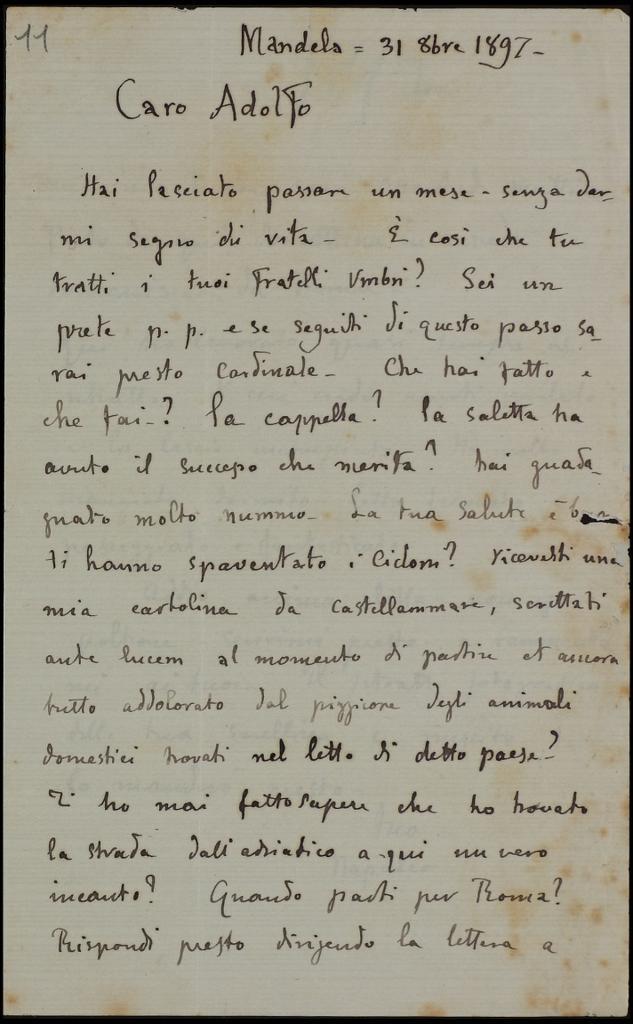 11
Mandela = 31 8bre 1897-
Caro Adolfo
Hai lasciato passare un mese - senza dar-
mi segno di vita - È così che tu
tratti i tuoi Fratelli Umbri? Sei un
prete p. p. e se seguiti di questo passo sa-
rai presto Cardinale - Che hai fatto e
che fai-? la cappella? la saletta ha
avuto il successo che merita? hai guada-
gnato molto nummo - La tua salute è
ti hanno spaventato i Cicloni? ricevesti una
mia cartolina da Castellammare, scrittati
ante lucem al momento di partire et ancora
tutto addolorato dal pizzicore degli animali
domestici trovati nel letto di detto paese?
Ti ho mai fatto sapere che ho trovato
la strada dall'adriatico a qui un vero
incanto? Quando parti per Roma?
Rispondi presto dirigendo la lettera a